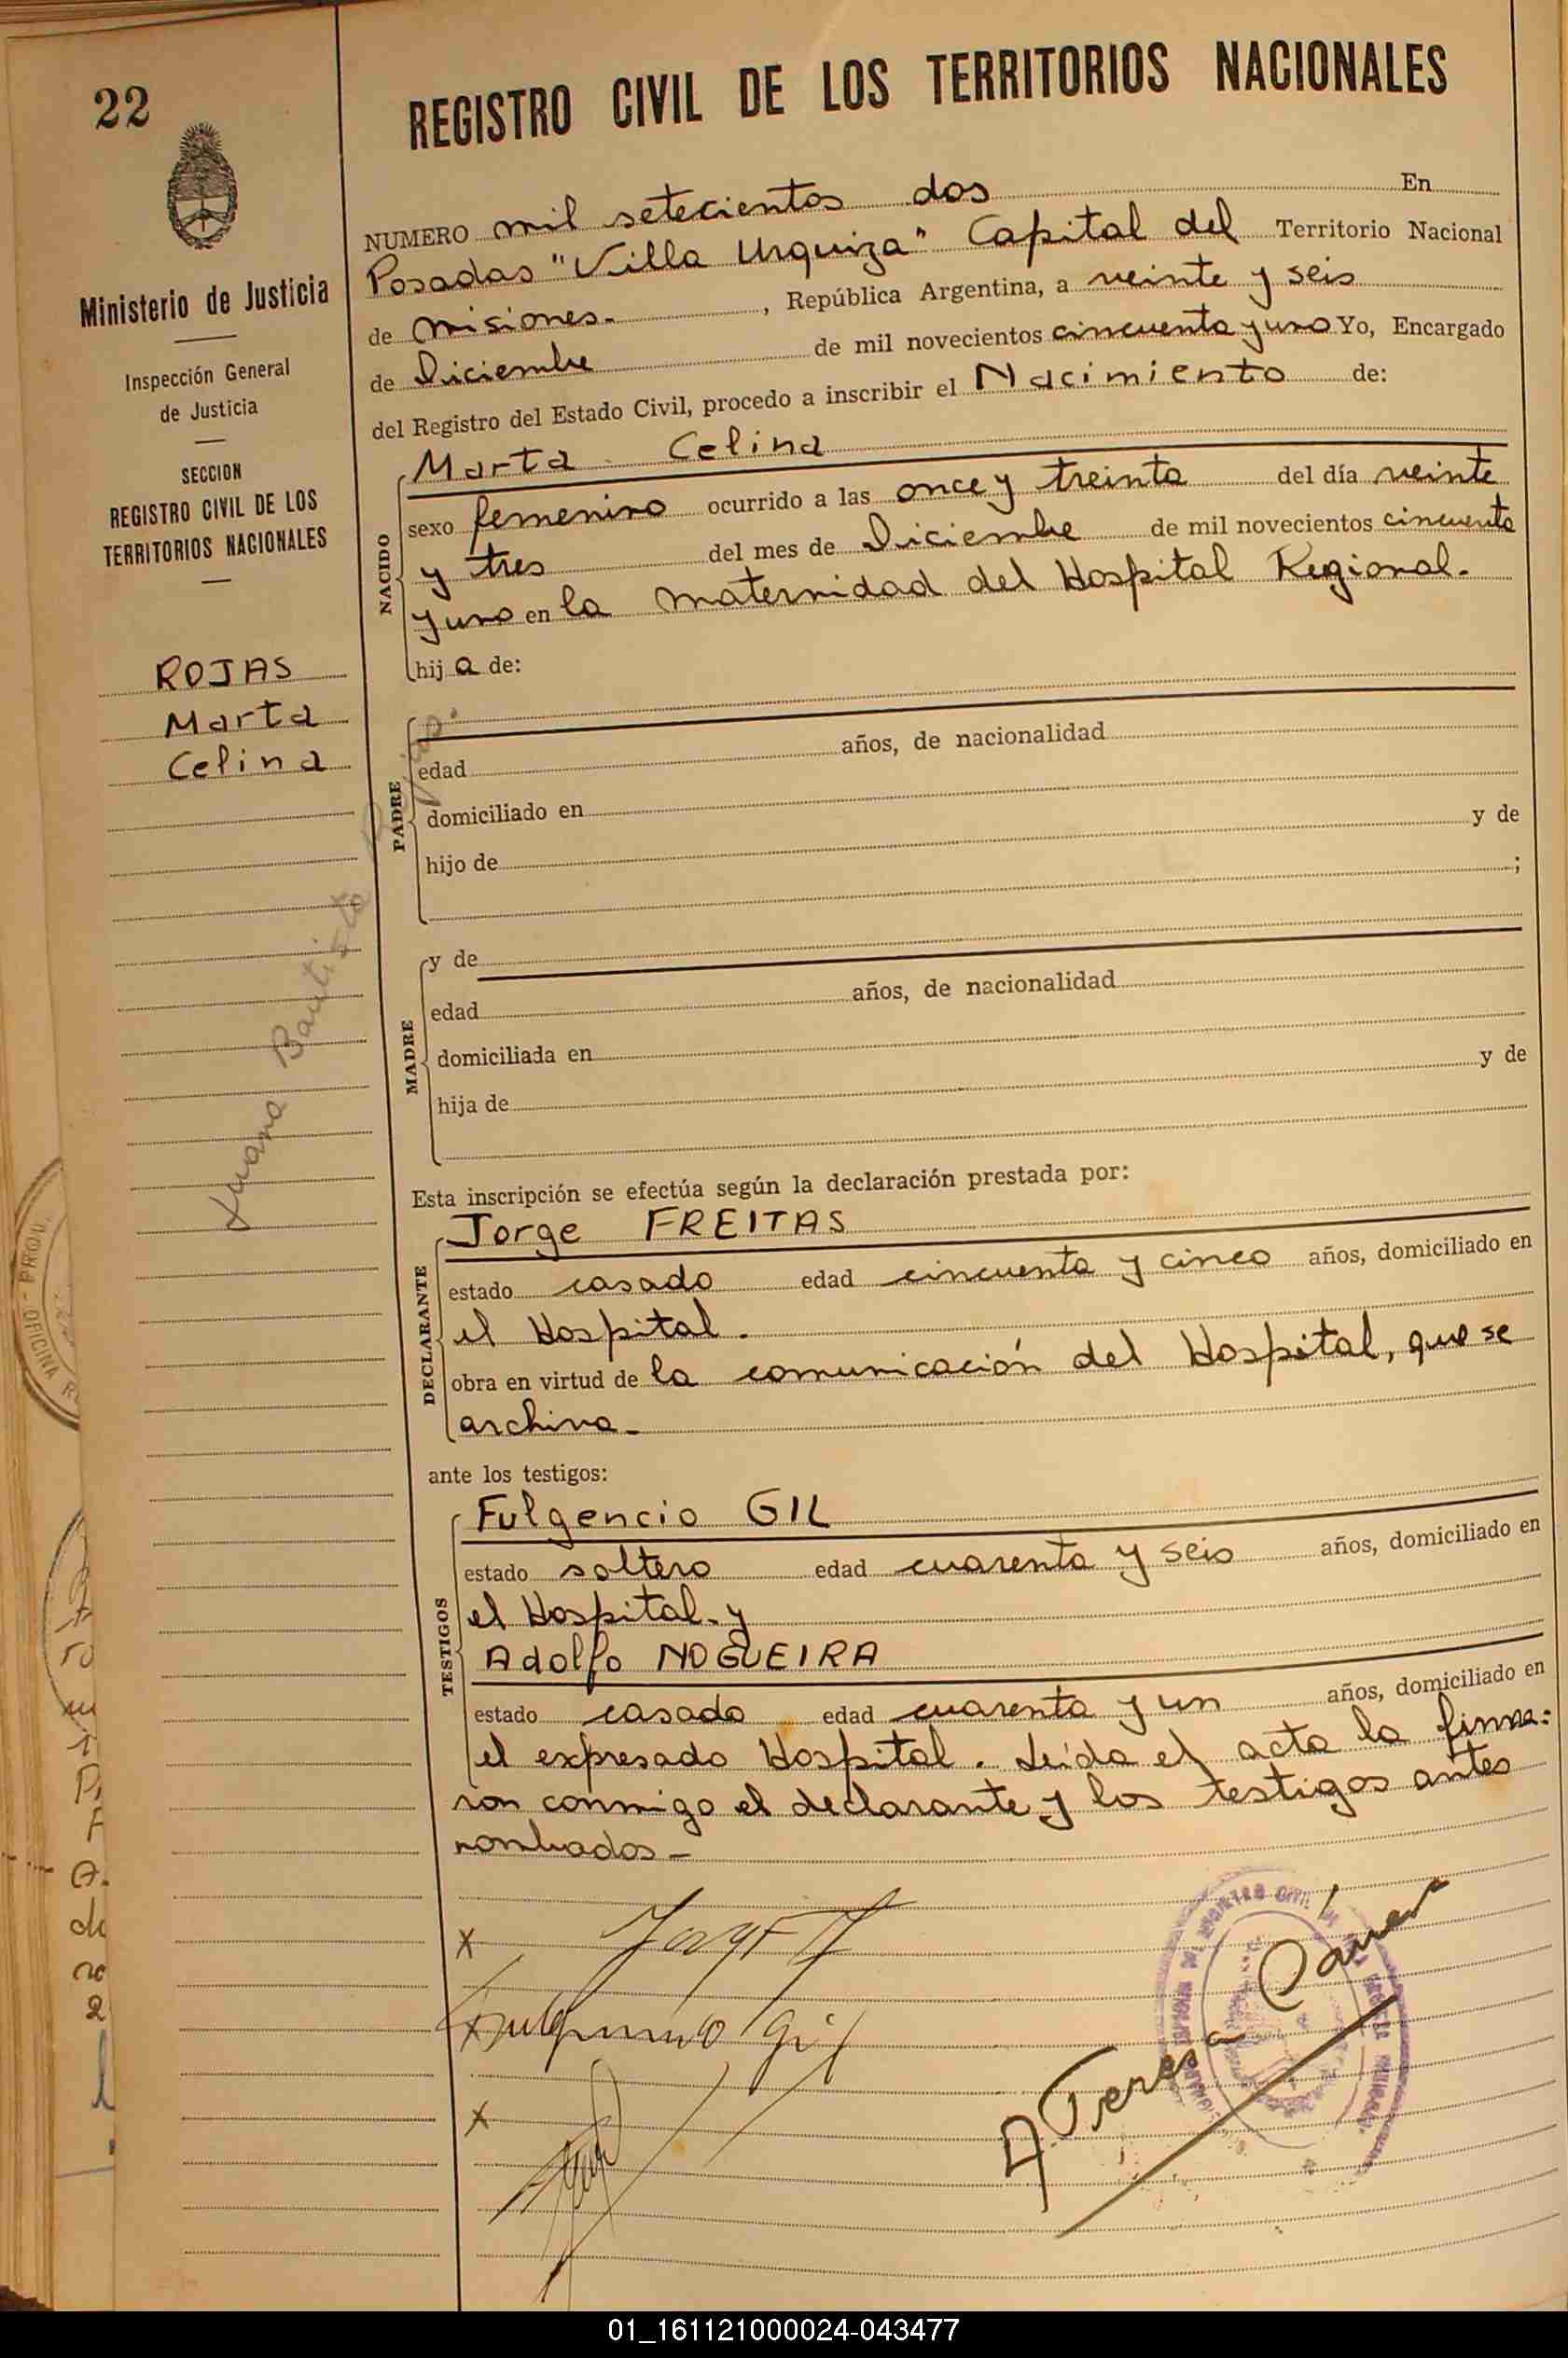 22
REGISTRO CIVIL DE LOS TERRITORIOS NACIONALES
Ministerio de Justicia
Inspección General
de Justicia
SECCION
REGISTRO CIVIL DE LOS
TERRITORIOS NACIONALES
ROJAS
Marta
Celina
Juana Bautista Rojas.
NUMERO mil setecientos dos En
Posadas "Villa Urquiza" Capital del Territorio Nacional
de Misiones.-, República Argentina, a veinte y seis
de Diciembre de mil novecientos cincuenta y uno Yo, Encargado
del Registro del Estado Civil, procedo a inscribir el Nacimiento de:
NACIDO
Marta Celina
sexo femenino ocurrido a las once y treinta del día veinte
y tres del mes de Diciembre de mil novecientos cincuenta
y uno en la maternidad del Hospital Regional.
hij a de:
PADRE
edad años, de nacionalidad
domiciliado en
hijo de y de
;
MADRE
y de
edad años, de nacionalidad
domiciliada en
hija de y de
Esta inscripción se efectúa según la declaración prestada por:
DECLARANTE
Jorge FREITAS
estado casado edad cincuenta y cinco años, domiciliado en
el Hospital.
obra en virtud de la comunicación del Hospital, que se
archiva.
ante los testigos:
TESTIGOS
Fulgencio GIL
estado soltero edad cuarenta y seis años, domiciliado en
el Hospital. y
Adolfo NOGUEIRA
estado casado edad cuarenta y un años, domiciliado en
el expresado Hospital. Leída el acta la firma:
ron conmigo el declarante y los testigos antes
nombrados-
x
x Fulgencio Gil
x
A. Teresa
OFICINA
01_161121000024-043477